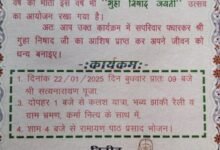 वर्ष की भांति इस वर्ष भी "गुहा निषाद जयंती" उत्सव
का आयोजन रखा गया है।
अतः आप उक्त कार्यक्रम में सपरिवार पधारकर श्री
गुहा निषाद जी का आशिष प्राप्त कर अपने जीवन को
धन्य बनाइए।
कार्यक्रम:
1. दिनांक 22 / 01 /2025 दिन बुधवार प्रातः 09 बजे
श्री सत्यनारायण पूजा.
2. दोपहर 1 बजे से कलश यात्रा, भव्य झांकी रैली व
ग्राम भ्रमण, कर्मा नित्य के साथ में.
3. शाम 4 बजे से रामायण पाठ प्रसाद भोजन।